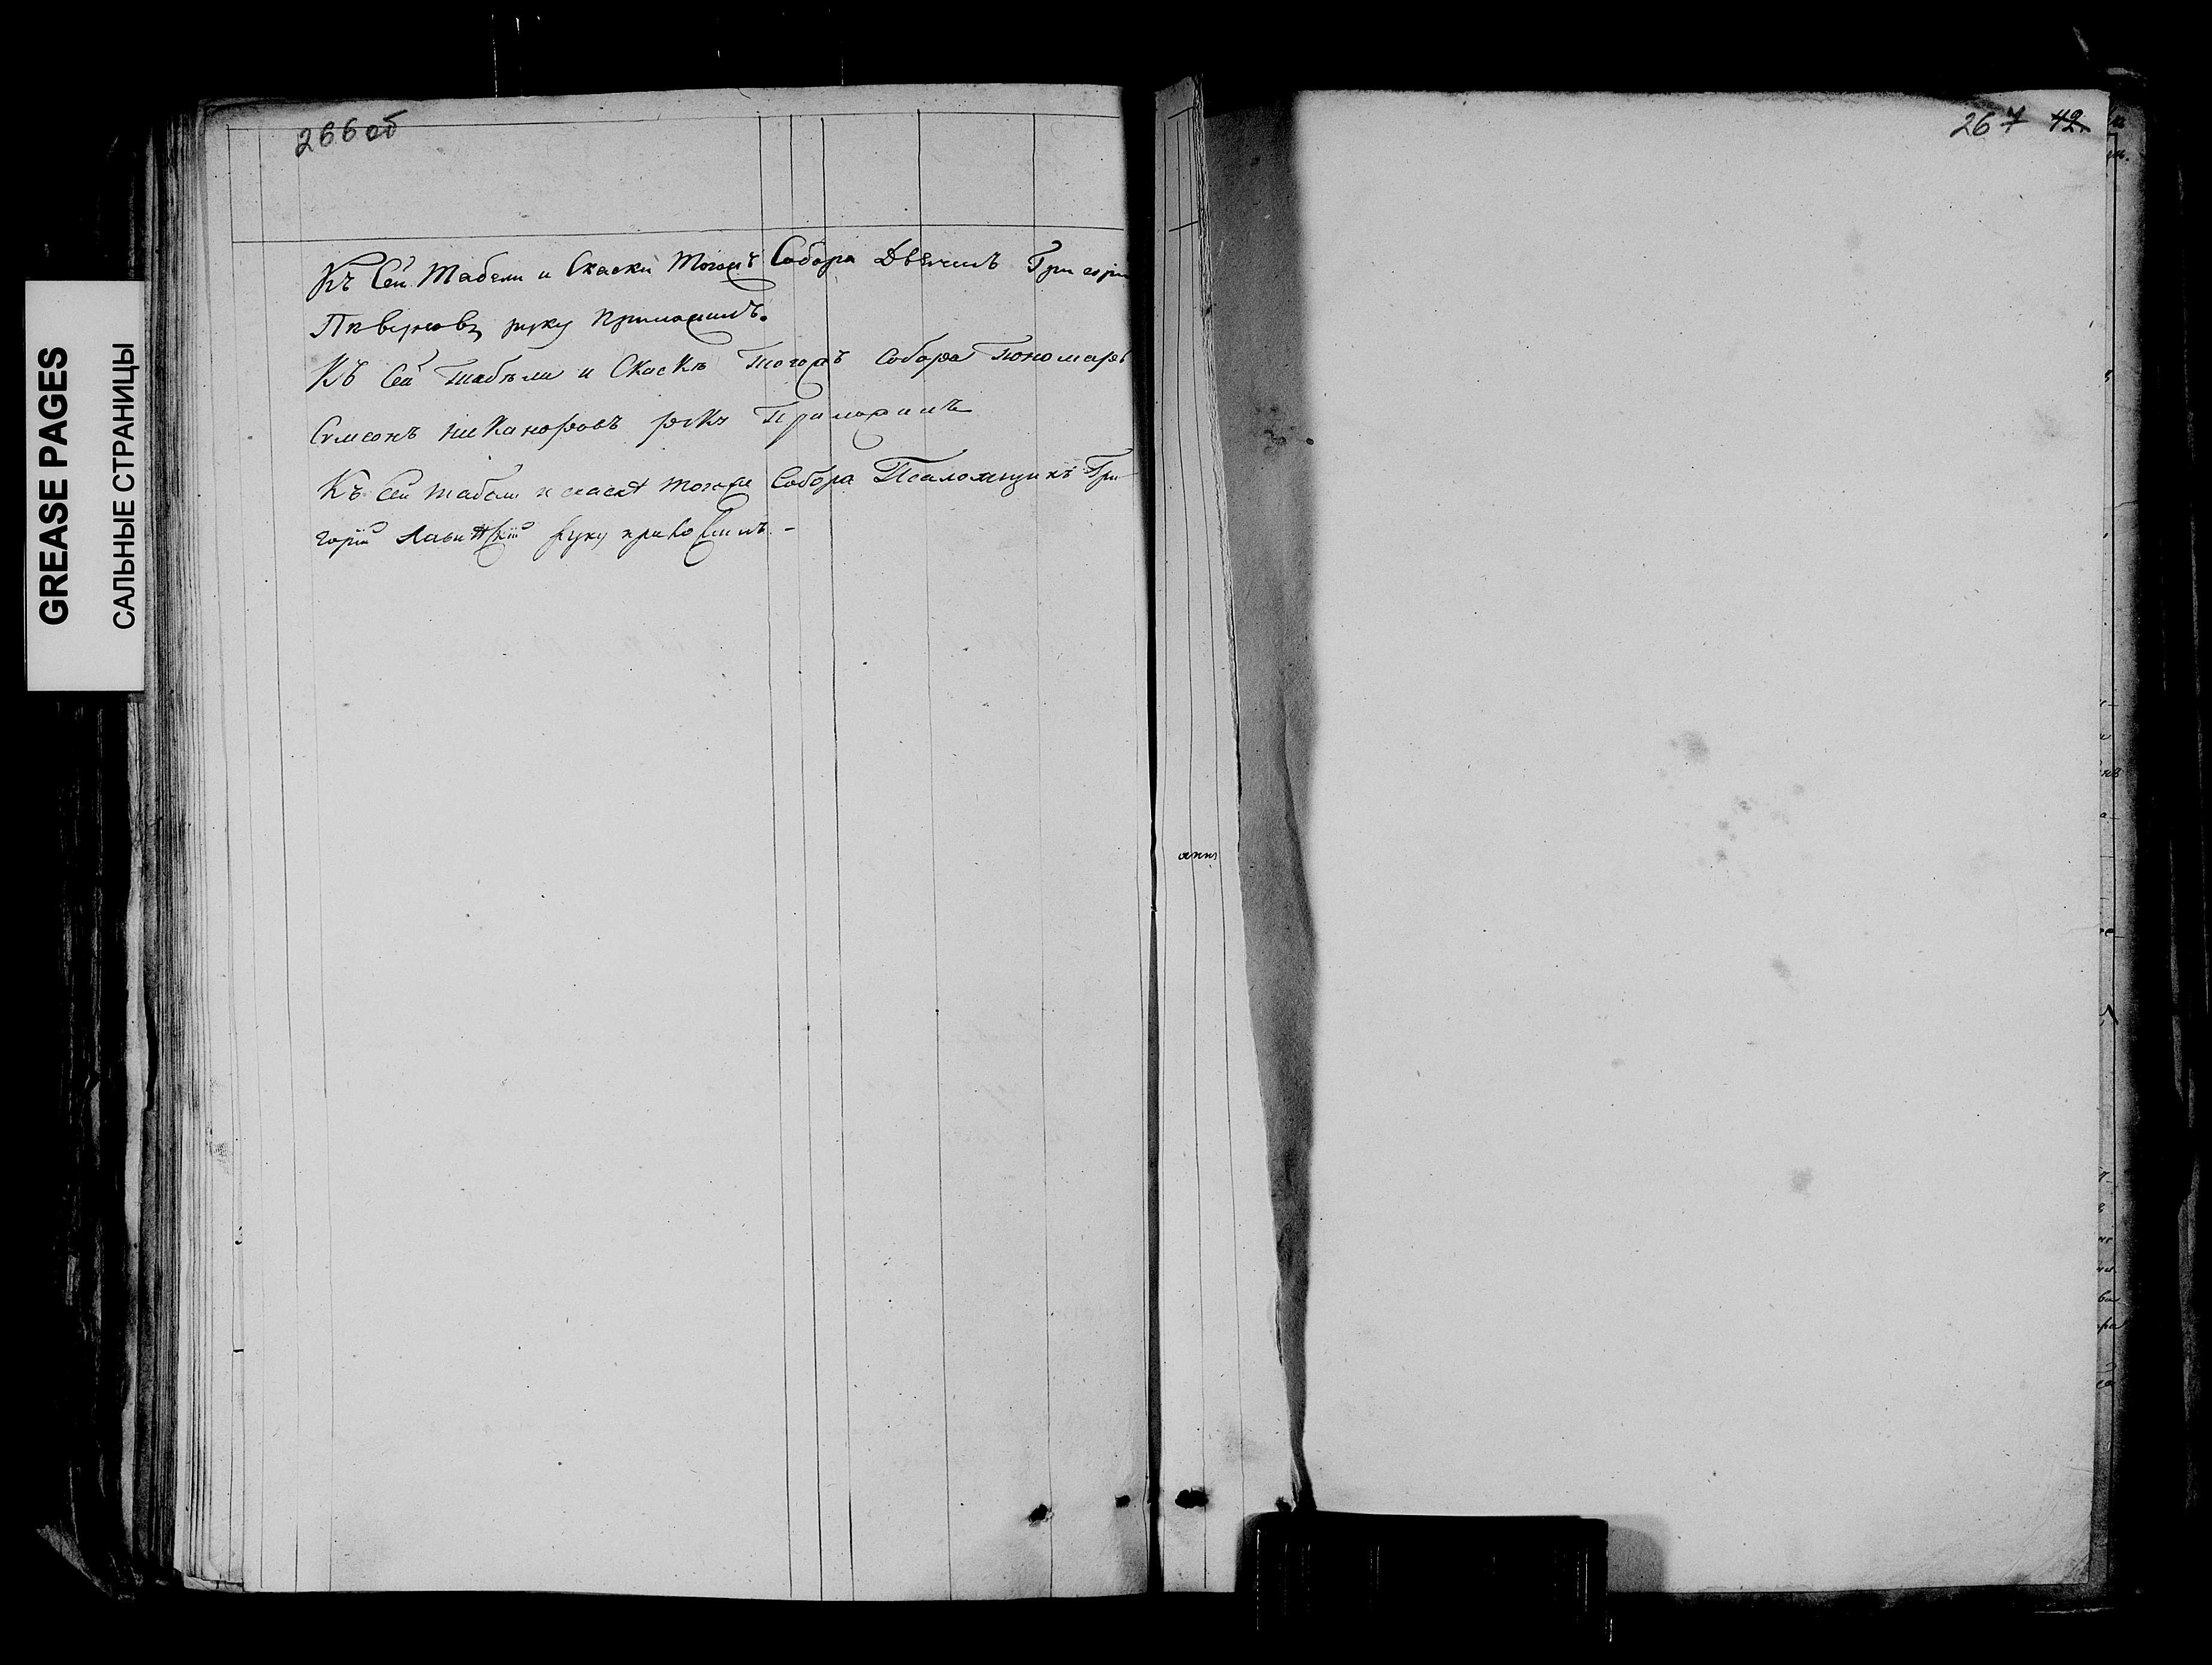 GREASE PAGES
САЛЬНЫЕ СТРАНИЦЫ
266 об
Къ Сей Табели и Скаски тогожъ Собора Дьячикъ Григори
руку приложилъ.
Къ сей табѣли и Скаскѣ тогожъ собора пономарь
Сумеонъ Никаноровъ рꙋкꙋ приложилъ
Къ Сей табели и скаскѣ тогоже Собора Псаломщикъ Гри-
горій руку приложилъ. -
267 42